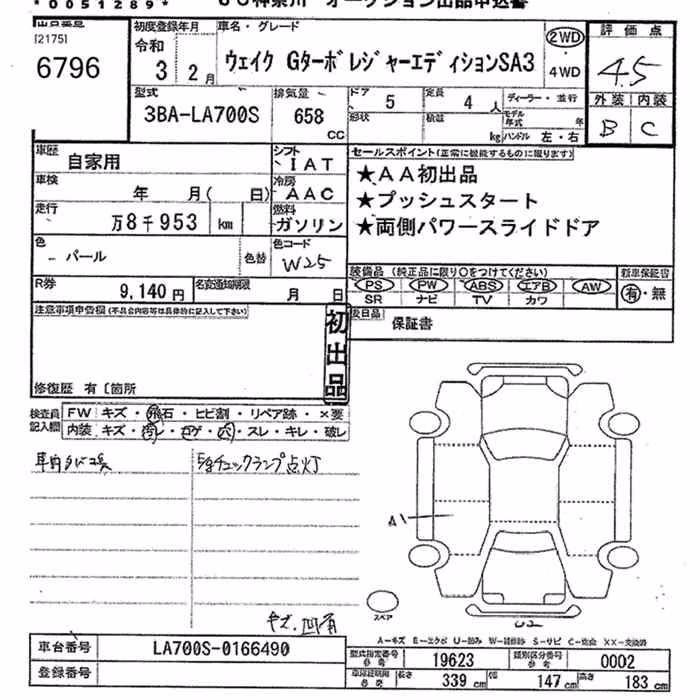 *0051289*
出品番号
[2175]
6796
初度登録年月
令和
3 2月
車名・グレード
ウェイク GターボレジャーエディションSA3
2WD
・
4WD
評価点
4.5
外装 内装
B C
型式
3BA-LA700S
排気量
658 CC
ドア
5
定員
4 人
形状
積載
kg
ディーラー・並行
モデル年式 年
ハンドル 左・右
車歴
自家用
シフト
IAT
車検
年 月( 日)
冷房
AAC
走行
万8千953 km
燃料
ガソリン
色
パール
色替
色コード
W25
R券
9,140 円
名変通知期限
月 日
セールスポイント(正常に機能するものに限ります)
★AA初出品
★プッシュスタート
★両側パワースライドドア
装備品 (純正品に限り○をつけてください)
PS PW ABS エアB AW
SR ナビ TV カワ
新車保証書
有・無
注意事項申告欄(不具合内容等は具体的に記入して下さい)
初出品
後日品
保証書
修復歴 有〔箇所
検査員記入欄
FW キズ・飛石・ヒビ割・リペア跡・×要
内装 キズ・汚レ・コゲ・穴・スレ・キレ・破レ
チェックランプ点灯
A
スペア
U2
キズ、凹有
A-キズ E-エクボ U-凹み W-補修跡 S-サビ C-腐食 XX-交換済
車台番号
LA700S-0166490
登録番号
型式指定番号
参考
19623
類別区分番号
参考
0002
車検証期限
参考
長さ 339 cm 幅 147 cm 高さ 183 cm